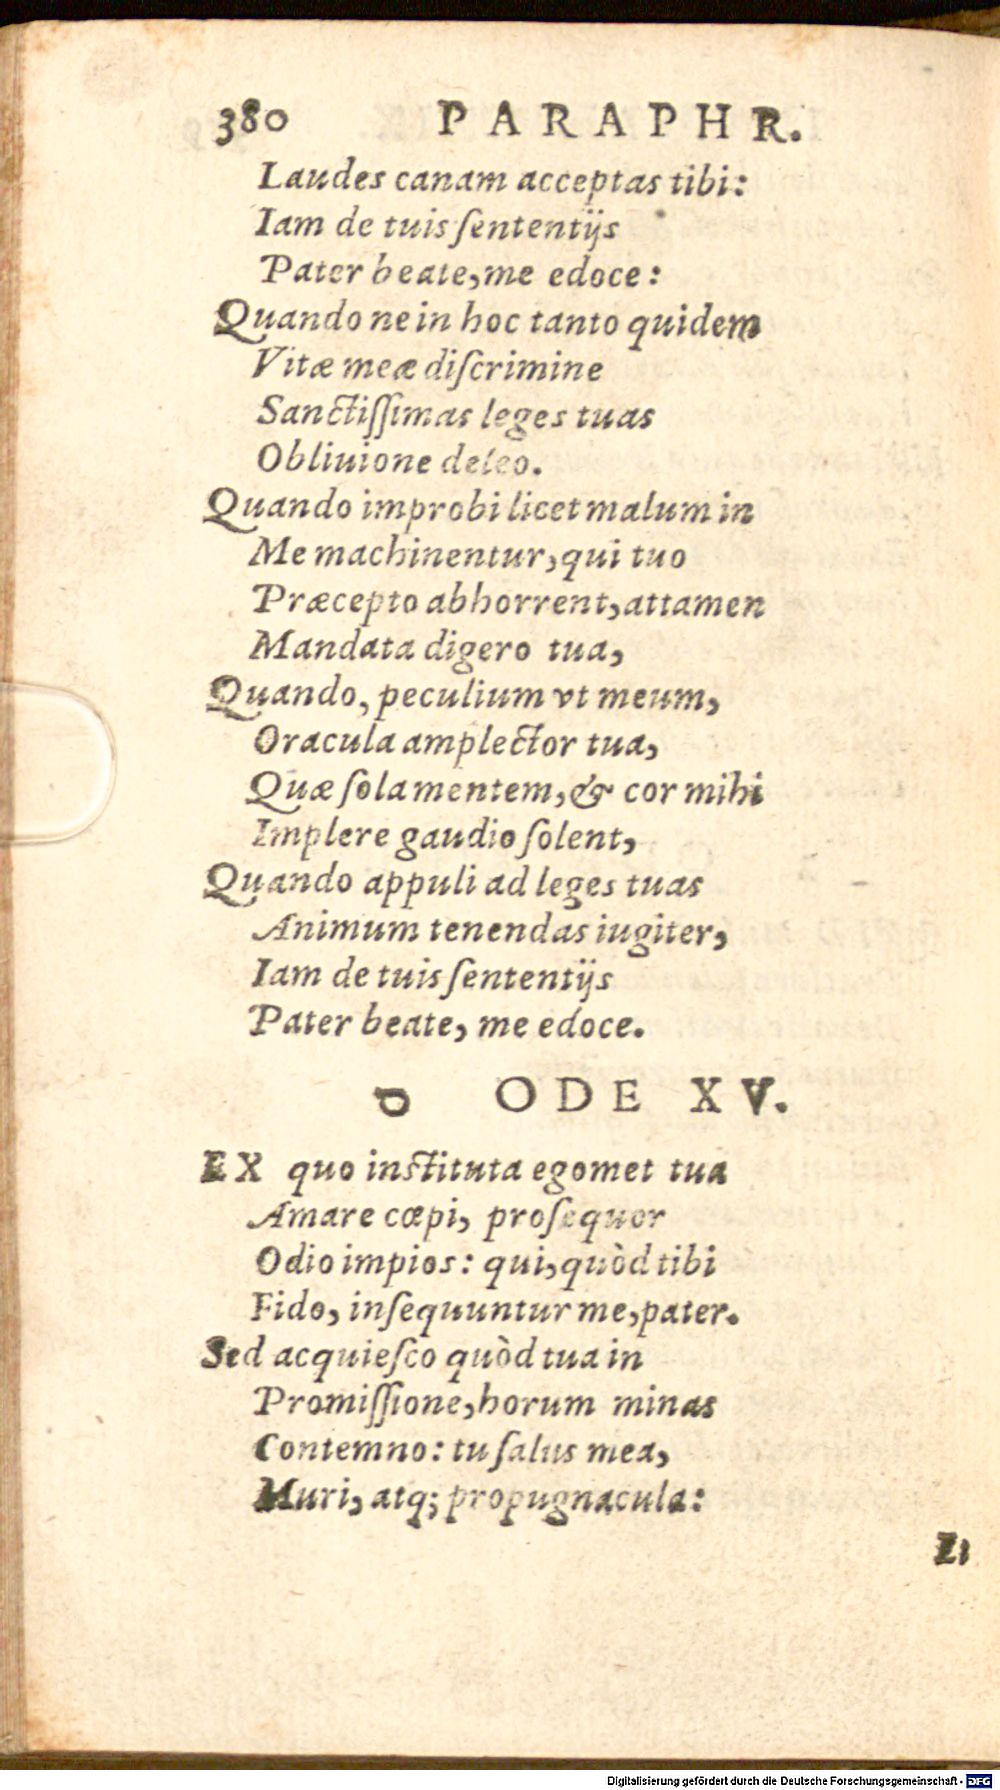 380 PARAPHR.
Laudes canam acceptas tibi:
Iam de tuis ſententijs
Pater beate, me edoce:
Quando ne in hoc tanto quidem
Vitæ meæ diſcrimine
Sanctiſſimas leges tuas
Obliuione deleo.
Quando improbi licet malum in
Me machinentur, qui tuo
Præcepto abhorrent, attamen
Mandata digero tua,
Quando, peculium vt meum,
Oracula amplector tua,
Quæ ſola mentem, & cor mihi
Implere gaudio ſolent,
Quando appuli ad leges tuas
Animum tenendas iugiter,
Iam de tuis ſententijs
Pater beate, me edoce.
ס ODE XV.
EX quo instituta egomet tua
Amare cœpi, proſequor
Odio impios: qui, quòd tibi
Fido, inſequuntur me, pater.
Sed acquieſco quòd tua in
Promiſſione, horum minas
Contemno: tu ſalus mea,
Muri, atq; propugnacula:
Digitalisierung gefördert durch die Deutsche Forschungsgemeinschaft - DFG